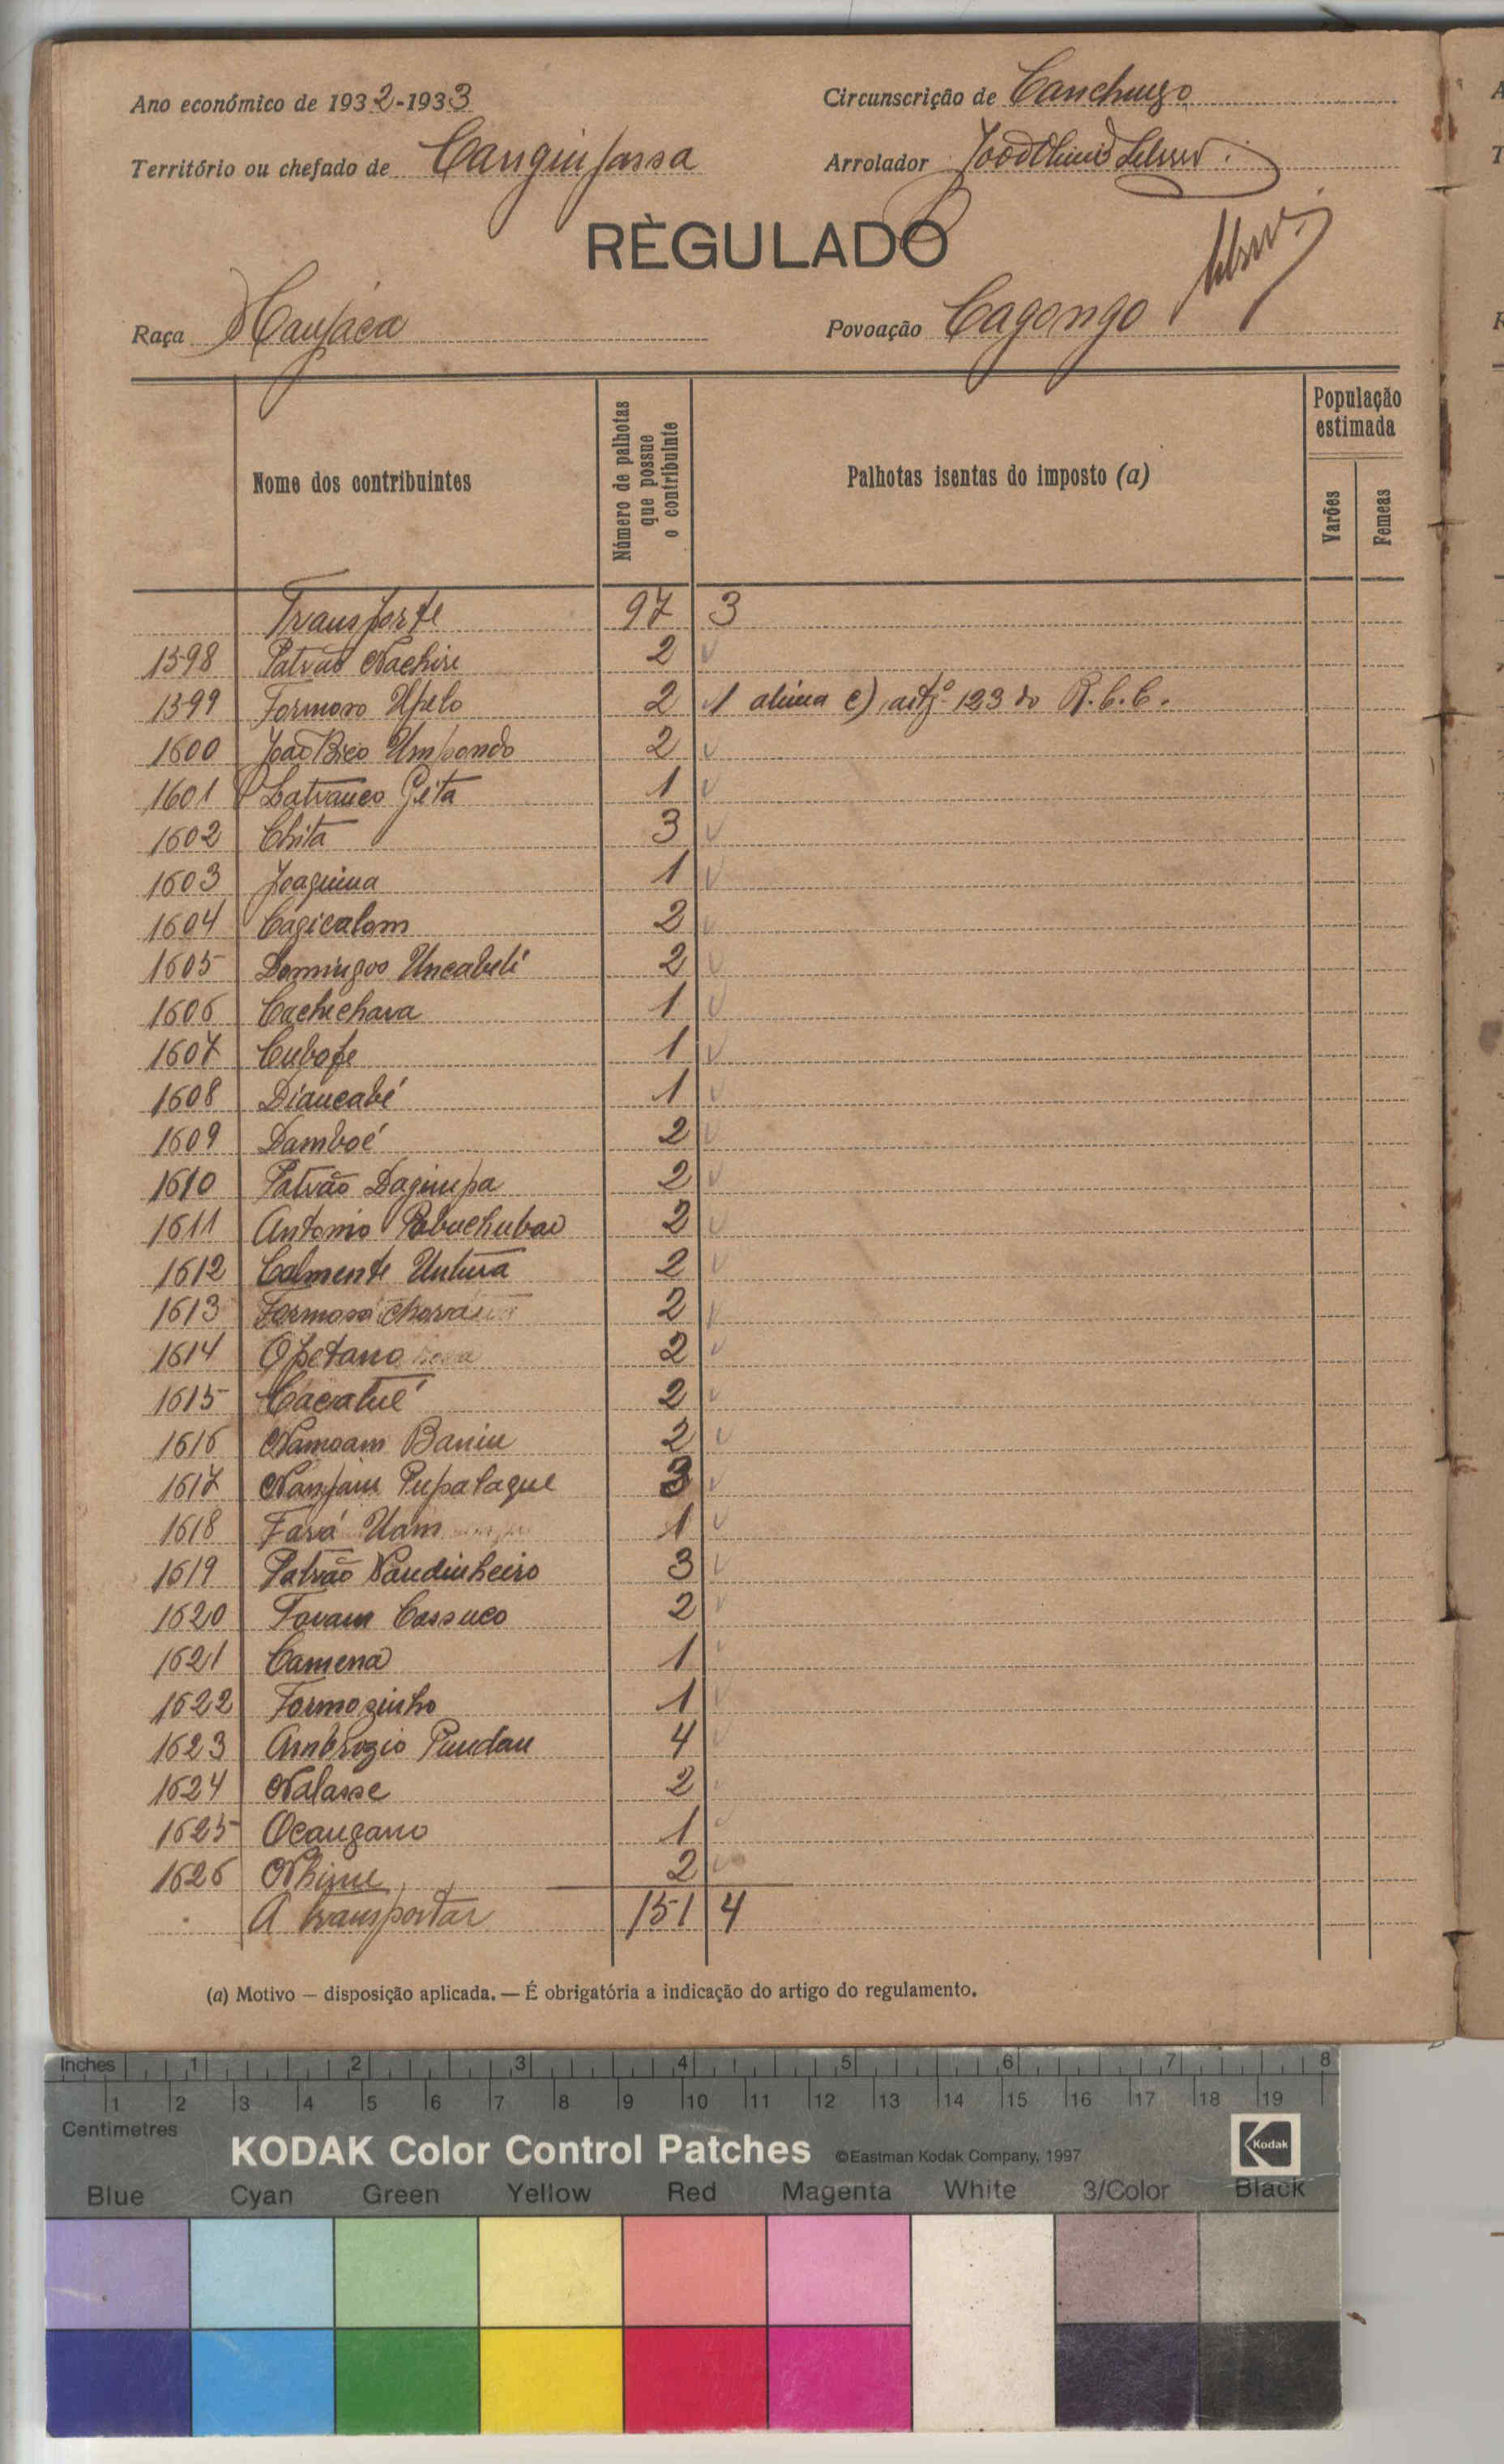 Ano económico de 1932-1933
Circunscrição de Canchungo
Território ou chefado de Canguinjassa
Arrolador
RÈGULADO
Raça Manjáca
Povoação Cagongo
Nome dos contribuintes
Número de palhotas que possue o contribuinte
Palhotas isentas do imposto (a)
População estimada
Varões
Femeas
Transporte 97 3
1598 Patrão Nachire 2
1599 Formoso Upelo 2 1 alinea c) artg.º 123 do R.C.C.
1600 João Bico Umpondo 2
1601 Latranco Gita 1
1602 Chita 3
1603 Joaquina 1
1604 Cagicalom 2
1605 Domingos Uncabeli 2
1606 Cachichava 1
1607 Cubofe 1
1608 Diancabé 1
1609 Damboé 2
1610 Patrão Daguipa 2
1611 Antonio 2
1612 Calmente Untina 2
1613 Formoso 2
1614 Opetano 2
1615 Cacatué 2
1616 Namoam Baniu 2
1617 Nanjain Pupalague 3
1618 Fará Uam 1
1619 Patrão Naudinheiro 3
1620 Tovam Cassuco 2
1621 Camena 1
1622 Formozinho 1
1623 Ambrozio Pundau 4
1624 Nalasse 2
1625 Ocangano 1
1626 Nhime 2
A transportar 151 4
(a) Motivo — disposição aplicada. — É obrigatória a indicação do artigo do regulamento.
Inches 1 2 3 4 5 6 7 8
1 2 3 4 5 6 7 8 9 10 11 12 13 14 15 16 17 18 19
Centimetres
KODAK Color Control Patches ©Eastman Kodak Company, 1997 Kodak
Blue Cyan Green Yellow Red Magenta White 3/Color Black